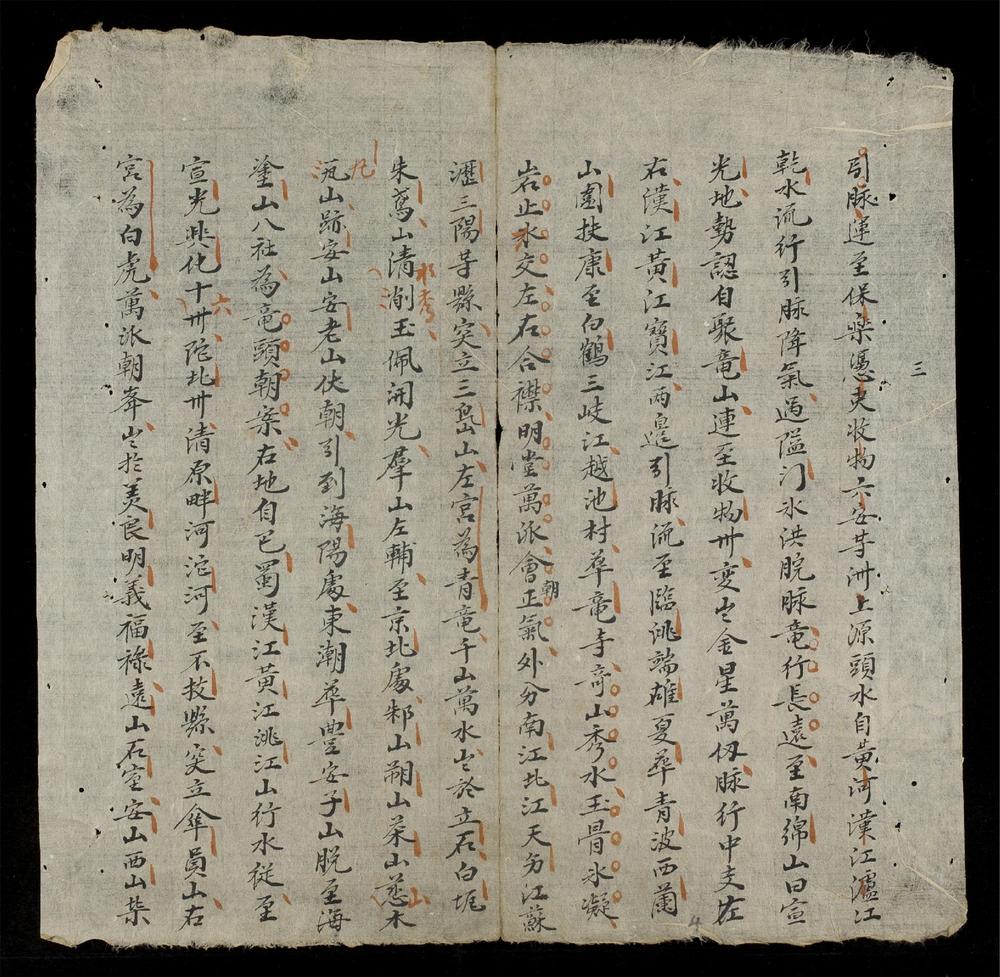 三
引脉逆至保楽憑夷收物六安䒭洲上源頭水自黄河漢江瀘江
乾水流行引脉降氣過隘门氷洪脫脉竜行長遠至南綿山曰宣
光地势認自聚竜山連至收物卅变岀金星萬仭脉行中支左
右漢江黄江寳江两邉引脉流至臨洮端雄夏華青波西蘭
山圍扶康至白鶴三岐江越池村華竜寺竒山秀水玉骨氷凝
岩止水交左右合襟明堂萬派會朝正氣外分南江北江天幼江蘇
瀝三陽䒭縣突立三島山左宫為青竜千山萬水岀於立石白
朱鳶山清水秀削玉佩開光羣山左輔至京北處山朔山菜山慈山木
山跡安山安老山伏朝引到海陽處東潮華豊安子山脱至海
九
塗山八社為竜頭朝案右地自巴蜀漢江黄江洮江山行水従至
宣光興化十六卅陀北卅清原畔河沱河至不技縣突立傘員山右
宫為白虎萬派朝奔岀扵美良明義福祿遠山石室安山西山柴
4